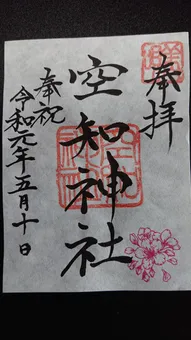 奉拝
空知神社
奉祝
令和元年五月十日